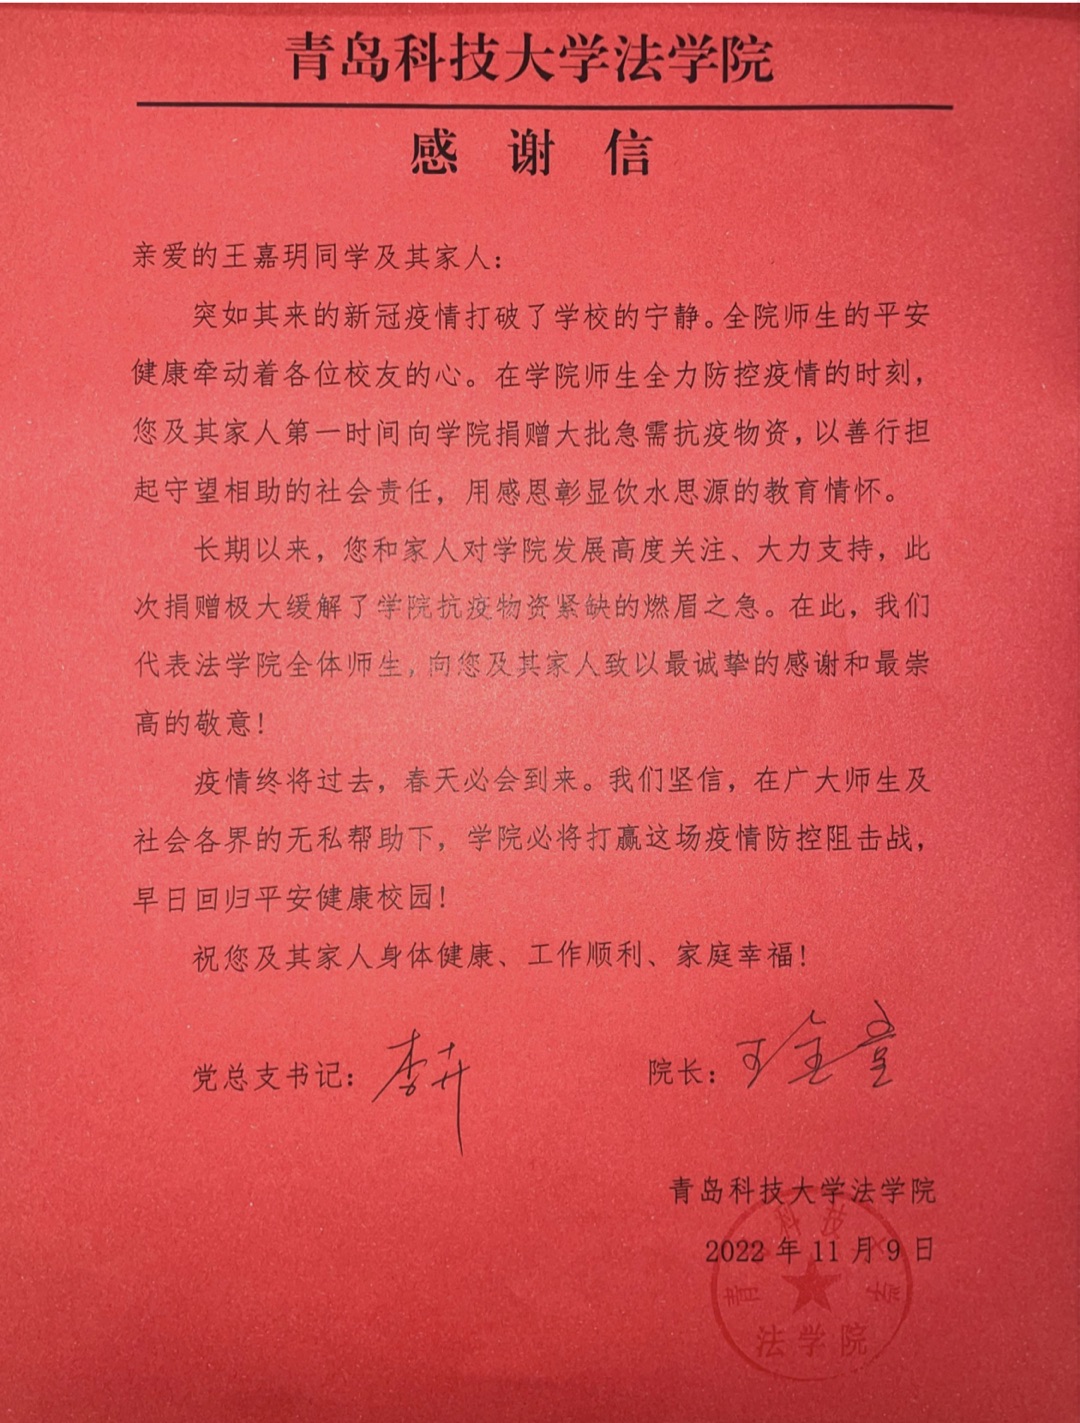 青岛科技大学法学院
感谢信
亲爱的王嘉玥同学及其家人：
突如其来的新冠疫情打破了学校的宁静。全院师生的平安
健康牵动着各位校友的心。在学院师生全力防控疫情的时刻，
您及其家人第一时间向学院捐赠大批急需抗疫物资，以善行担
起守望相助的社会责任，用感恩彰显饮水思源的教育情怀。
长期以来，您和家人对学院发展高度关注、大力支持，此
次捐赠极大缓解了学院抗疫物资紧缺的燃眉之急。在此，我们
代表法学院全体师生，向您及其家人致以最诚挚的感谢和最崇
高的敬意！
疫情终将过去，春天必会到来。我们坚信，在广大师生及
社会各界的无私帮助下，学院必将打赢这场疫情防控阻击战，
早日回归平安健康校园！
祝您及其家人身体健康、工作顺利、家庭幸福！
党总支书记：
院长：
青岛科技大学法学院
2022年11月9日
法学院